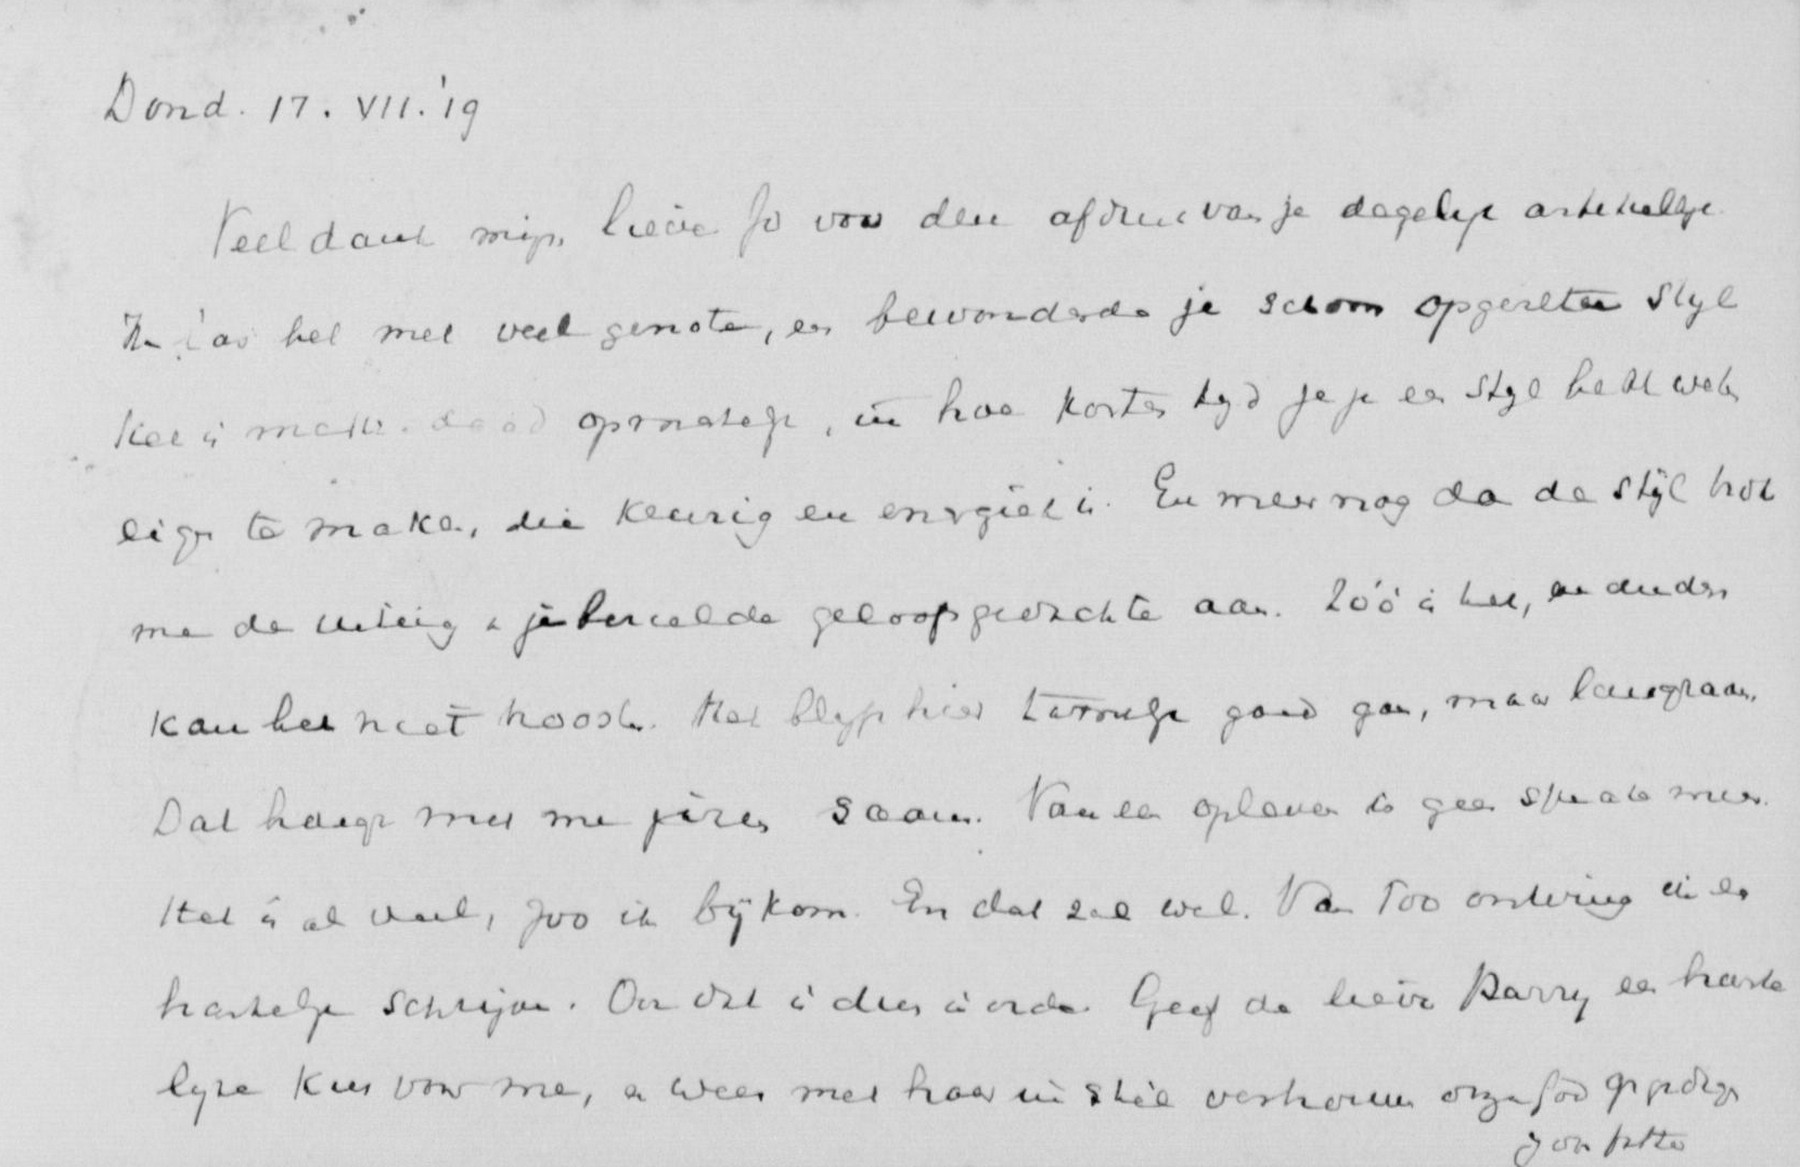 Dond. 17. VII. '19
Veel dank mijn lieve Jo voor den afdruk van je dagelijx artikeltje
Ik las het met veel genoten, en bewonderde je schoon opgezetten styl
Het is inderdaad opmerkelijk, in hoe korten tyd je je een styl hebt weten
eigen te maken, die keurig en energiek is. En meer nog dan de stijl trok
me de uiting v je bezielde geloofsgedachte aan. Zóó is het, en anders
kan het niet troosten. Het blijft hier betrouwelijk goed gaan, maar langzaam.
Dat hangt met me jaren saam. Van een opleven is geen sprake meer.
Het is al veel, zoo ik bijkom. En dat zal wel. Van Too ontving ik een
hartelijk schrijven. Ook dat is dus in orde. Geef de lieve Harry een harte
lyke kus voor me, en wees met haar in stil vertrouwen onzen God opgedragen